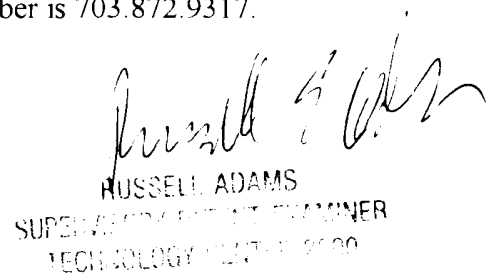 ber is 703.872.9317.
Russell
RUSSELL ADAMS
SUPERVISORY PATENT EXAMINER
TECHNOLOGY CENTER 2800